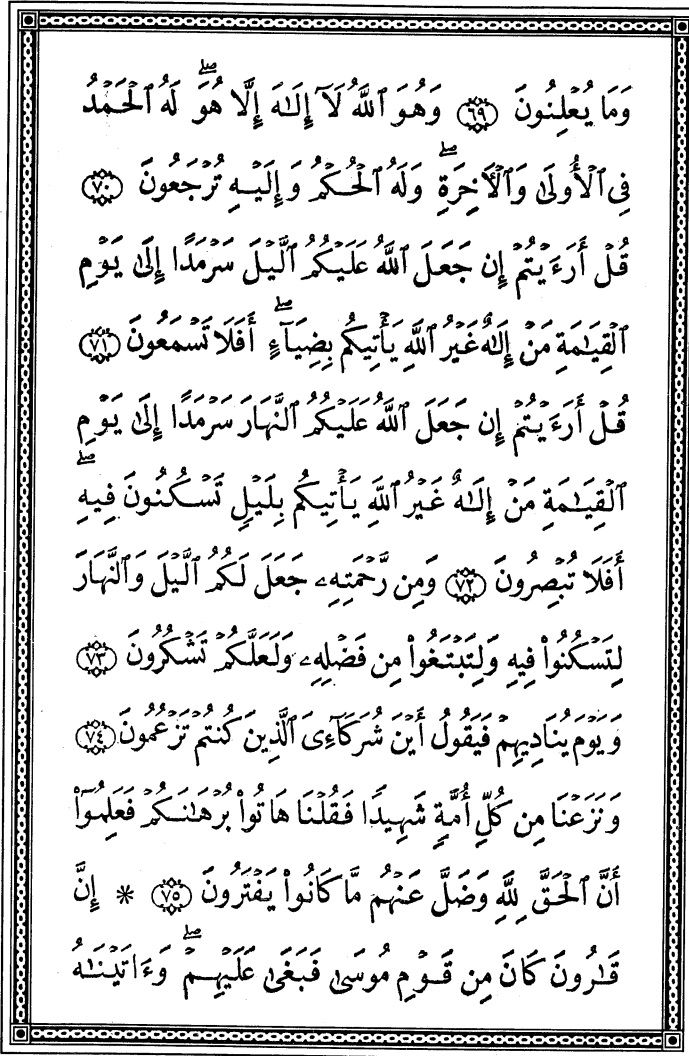 وَمَا يُعْلِنُونَ ﴿٦٩﴾ وَهُوَ ٱللَّهُ لَآ إِلَـٰهَ إِلَّا هُوَ ۖ لَهُ ٱلْحَمْدُ
فِى ٱلْأُولَىٰ وَٱلْـَٔاخِرَةِ ۖ وَلَهُ ٱلْحُكْمُ وَإِلَيْهِ تُرْجَعُونَ ﴿٧٠﴾
قُلْ أَرَءَيْتُمْ إِن جَعَلَ ٱللَّهُ عَلَيْكُمُ ٱلَّيْلَ سَرْمَدًا إِلَىٰ يَوْمِ
ٱلْقِيَـٰمَةِ مَنْ إِلَـٰهٌ غَيْرُ ٱللَّهِ يَأْتِيكُم بِضِيَآءٍ ۖ أَفَلَا تَسْمَعُونَ ﴿٧١﴾
قُلْ أَرَءَيْتُمْ إِن جَعَلَ ٱللَّهُ عَلَيْكُمُ ٱلنَّهَارَ سَرْمَدًا إِلَىٰ يَوْمِ
ٱلْقِيَـٰمَةِ مَنْ إِلَـٰهٌ غَيْرُ ٱللَّهِ يَأْتِيكُم بِلَيْلٍ تَسْكُنُونَ فِيهِ ۖ
أَفَلَا تُبْصِرُونَ ﴿٧٢﴾ وَمِن رَّحْمَتِهِۦ جَعَلَ لَكُمُ ٱلَّيْلَ وَٱلنَّهَارَ
لِتَسْكُنُوا۟ فِيهِ وَلِتَبْتَغُوا۟ مِن فَضْلِهِۦ وَلَعَلَّكُمْ تَشْكُرُونَ ﴿٧٣﴾
وَيَوْمَ يُنَادِيهِمْ فَيَقُولُ أَيْنَ شُرَكَآءِىَ ٱلَّذِينَ كُنتُمْ تَزْعُمُونَ ﴿٧٤﴾
وَنَزَعْنَا مِن كُلِّ أُمَّةٍ شَهِيدًا فَقُلْنَا هَاتُوا۟ بُرْهَـٰنَكُمْ فَعَلِمُوٓا۟
أَنَّ ٱلْحَقَّ لِلَّهِ وَضَلَّ عَنْهُم مَّا كَانُوا۟ يَفْتَرُونَ ﴿٧٥﴾ * إِنَّ
قَـٰرُونَ كَانَ مِن قَوْمِ مُوسَىٰ فَبَغَىٰ عَلَيْهِمْ ۖ وَءَاتَيْنَـٰهُ